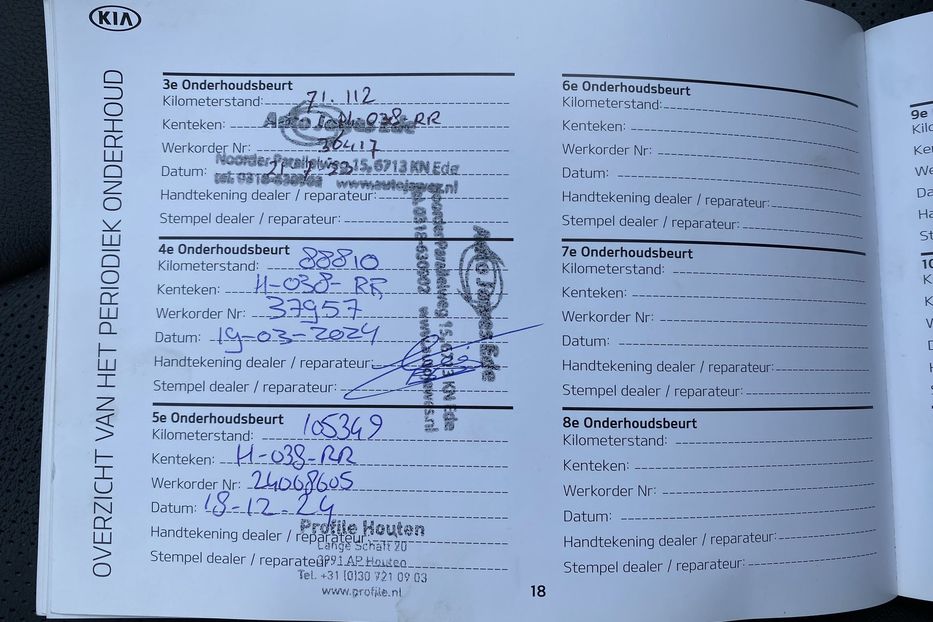 KIA
OVERZICHT VAN HET PERIODIEK ONDERHOUD
3e Onderhoudsbeurt
Kilometerstand: 71.112
Kenteken: H-038-RR
Werkorder Nr: 36417
Datum:
Handtekening dealer / reparateur:
Stempel dealer / reparateur:
Auto Ede
Noorder Parallelweg 15, 6713 KN Ede
4e Onderhoudsbeurt
Kilometerstand: 88810
Kenteken: H-038-RR
Werkorder Nr: 37957
Datum: 19-03-2024
Handtekening dealer / reparateur:
Stempel dealer / reparateur:
Auto Ede
Noorder Parallelweg 15, 6713 KN Ede
5e Onderhoudsbeurt
Kilometerstand: 105349
Kenteken: H-038-RR
Werkorder Nr: 24008605
Datum: 18-12-24
Handtekening dealer / reparateur:
Stempel dealer / reparateur:
Profile Houten
Lange Schaft 20
3991 AP Houten
Tel. +31 (0)30 721 09 03
www.profile.nl
6e Onderhoudsbeurt
Kilometerstand:
Kenteken:
Werkorder Nr:
Datum:
Handtekening dealer / reparateur:
Stempel dealer / reparateur:
7e Onderhoudsbeurt
Kilometerstand:
Kenteken:
Werkorder Nr:
Datum:
Handtekening dealer / reparateur:
Stempel dealer / reparateur:
8e Onderhoudsbeurt
Kilometerstand:
Kenteken:
Werkorder Nr:
Datum:
Handtekening dealer / reparateur:
Stempel dealer / reparateur:
18
9e